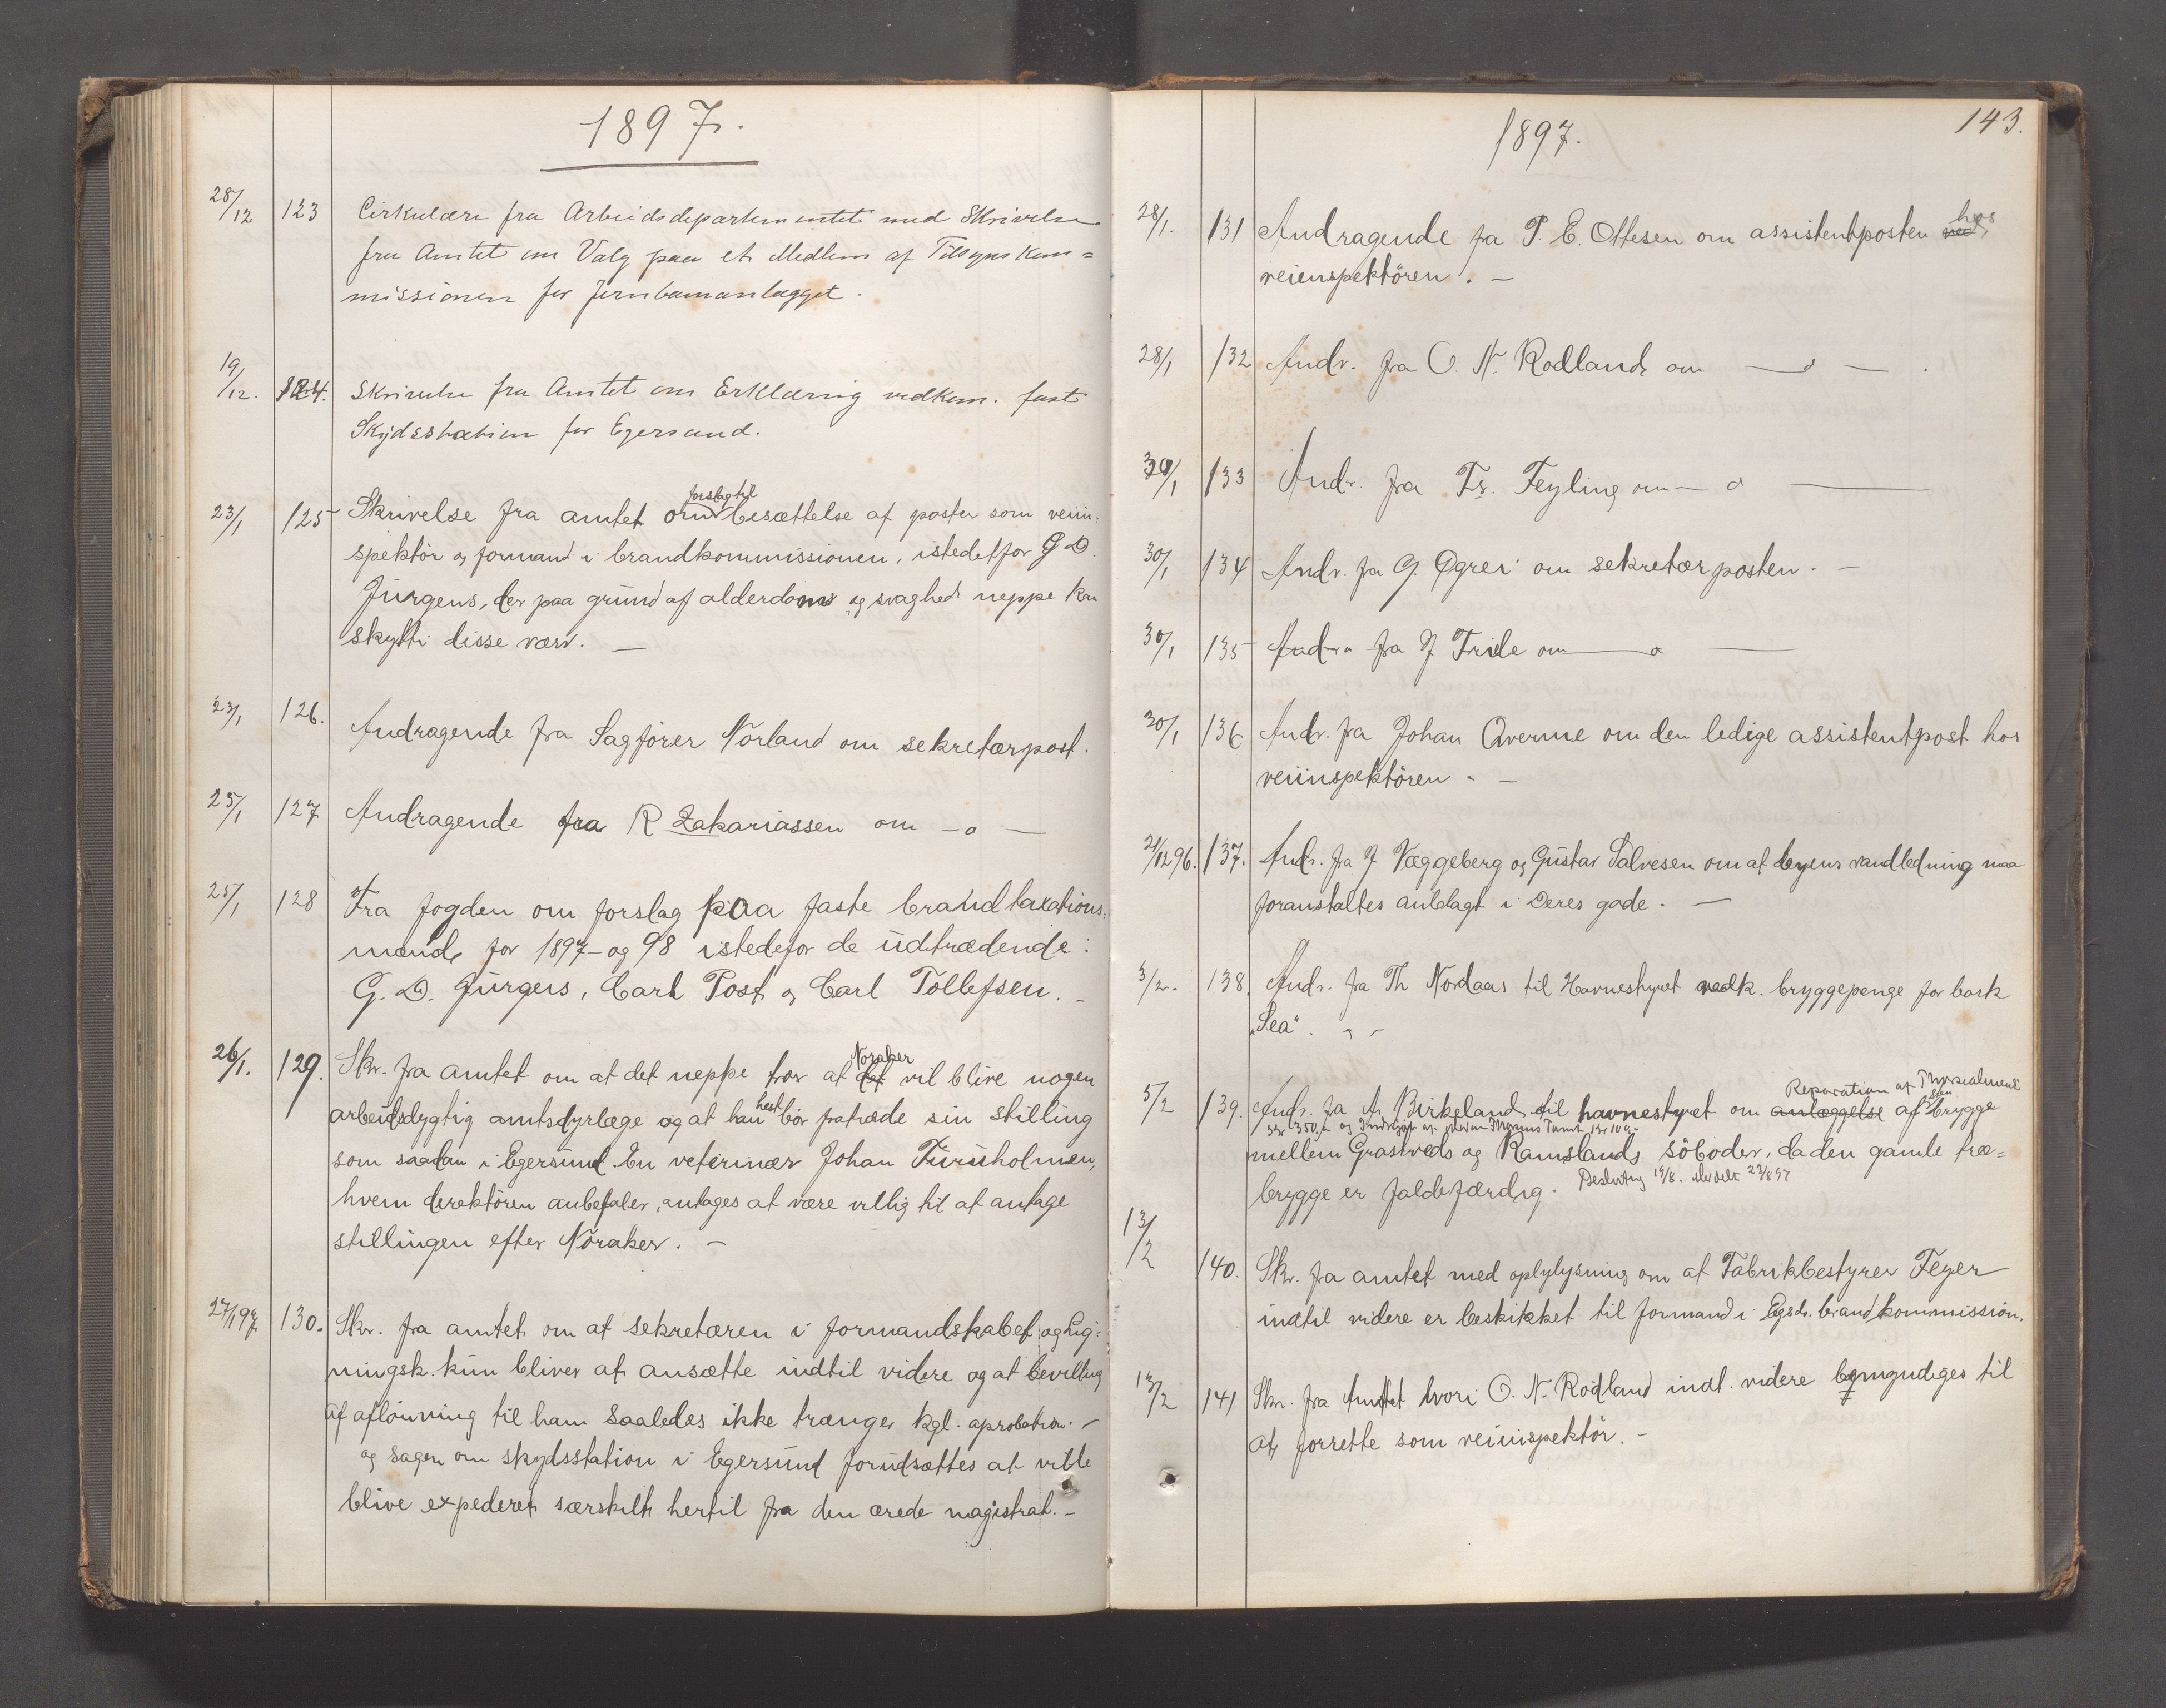 1897.
28/12 123 Cirkulære fra Arbeidsdepartementet med Skrivelse
fra Amtet om Valg paa et Medlem af Tilsynskom=
missionen for Jernbaneanlægget.
19/12. 124. Skrivelse fra Amtet om Erklæring vedkom. fast
Skydsstation for Egersund.
forslag til
23/1 125 Skrivelse fra amtet om besættelse af poster som veiin=
spektör og formand i brandkommissionen, istedetfor G D.
Jürgens, der paa grund af alderdoms og svaghed neppe kan
skytte disse værv. —
23/1 126. Andragende fra Sagförer Nörland om sekretærpost.
25/1 127 Andragende fra R Zakariassen om —o—
25/1 128 Fra fogden om forslag paa faste brandtaxations=
mænd for 1897 og 98 istedefor de udtrædende:
G. D. Jürgens, Carl Post og Carl Tollefsen. —
Noraker
26/1. 129. Skr. fra amtet om at det neppe tror at det vil blive nogen
arbeidsdygtig amtsdyrlæge og at han helst bör fratræde sin stilling
som saadan i Egersund. En veterinær Johan Furuholmen,
hvem direktören anbefaler, antages at være villig til at antage
stillingen efter Nöraker. —
27/1 97 130. Skr. fra amtet om at sekretæren i formandskabet og Lig=
ningsk. kun bliver at ansætte indtil videre og at bevilling
af aflönning til ham saaledes ikke trænger kgl. aprobation. —
og sagen om skydsstation i Egersund forudsættes at ville
blive expederet særskilt hertil fra den ærede magistrat. —
143.
1897.
28/1. 131 Andragende fra P. E. Ottesen om assistentposten ved hos
veiinspektören. —
28/1 132 Andr. fra O. N. Rodland om —o— .
30/1 133 Andr. fra Fr. Feyling om —o—
30/1 134 Andr. fra G. Øgrei om sekretærposten. —
30/1 135 Andr. fra J Fride om —o—
30/1 136 Andr. fra Johan Qverme om den ledige assistentpost hos
veiinspektören. —
21/12 96. 137. Andr. fra J Væggeberg og Gustav Salvesen om at byens vandledning maa
foranstaltes anlagt i Deres gade. —
3/2. 138. Andr. fra Th Nordaas til Havnestyret vedk. bryggepenge for bark
„Lea“.
Reparation af
5/2 139. Andr. fra A. Birkeland til havnestyret om anlæggelse af brygge
mellem Grastveds og Ramslands söboder, da den gamle træ=
brygge er faldefærdig. Beslutning 19/8. meddelt 23/8 97
13/2 140. Skr. fra amtet med oplylysning om at Fabrikbestyrer Feyer
indtil videre er beskikket til formand i Egsds. brandkommission.
14/2 141 Skr. fra Amtet hvori O. N. Rödland indt. videre bemyndiges til
at forrette som veiinspektör. —